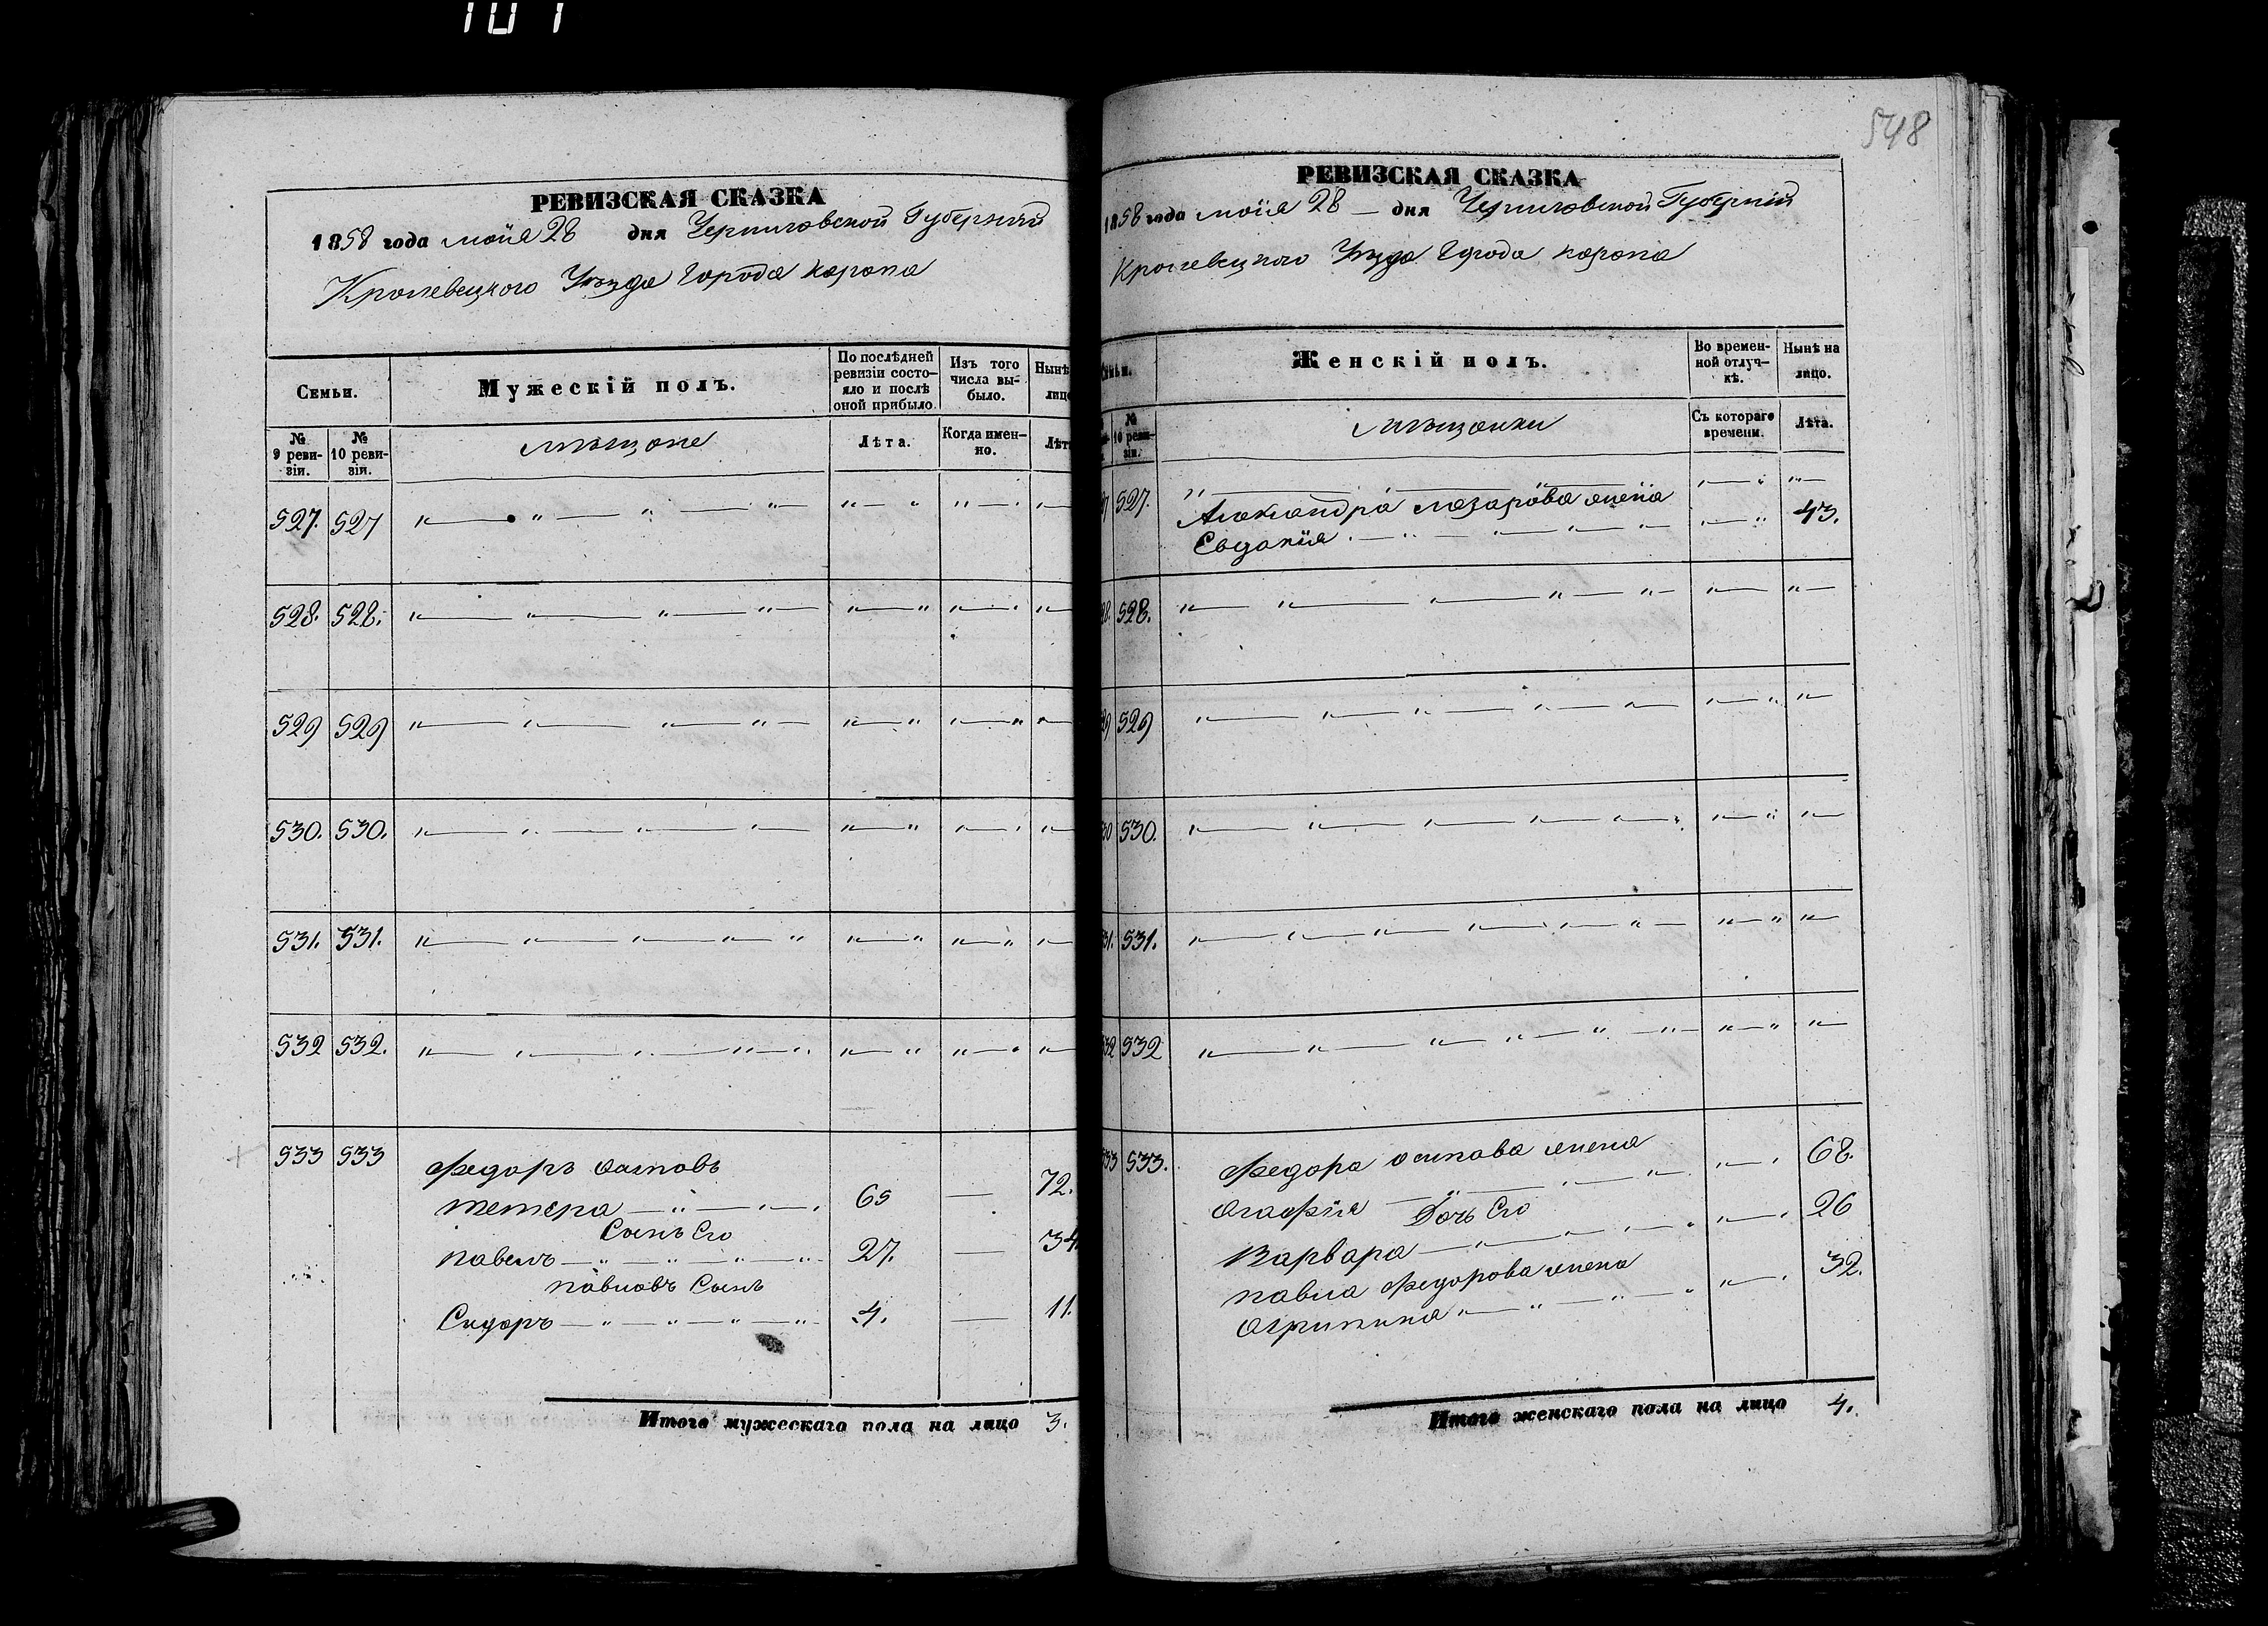 101
РЕВИЗСКАЯ СКАЗКА
1858 года маія 28 дня Черниговской Губерніи
Кролевецкого Уезда Города Коропа
Семьи.
Мужескій полъ.
По послѣдней ревизіи состо-
яло и послѣ
оной прибыло.
Изъ того
числа вы-
было.
Нынѣ
лицо
№
9 реви-
зіи.
№
10 реви-
зіи.
мѣщане
Лѣта.
Когда имен-
но.
Лѣт
527. 527 " — " — " — "
528. 528. " — " — " — "
529 529 " — " — " — "
530. 530. " — " — " — "
531. 531. " — " — " — " "
532 532. " — " — " — "
533 533 Федоръ Осиповъ
тетера — " — " — 65 — 72.
Сынъ Его
павелъ — " — " — " — " 27. — 34
павловъ Сынъ
Сидоръ — " — " — " — " 4. — 11.
Итого мужескаго пола на лицо 3.
548
РЕВИЗСКАЯ СКАЗКА
1858 года маія 28 — дня Черниговской Губерніи
Кролевецкого Уезда Города Коропа
Женскій полъ.
Во времен-
ной отлуч-
кѣ.
Нынѣ на
лицо.
№
10 реви-
зіи.
мѣщанки
Съ котораго
времени.
Лѣта.
527. Александра лазарова жена
Евдокія — " — " — " — 43.
528. " — " — " — " — "
529 " — " — " — " — "
530. " — " — " — " — "
531. " — " — " — " — "
532 " — " — " — " — "
533. Федора осипова жена
Агафія — " — " — " 68.
Дочь Его
Варвара — " — " — " 26
павла Федорова жена
Агрипина " — " — " — " 32.
Итого женскаго пола на лицо 4.